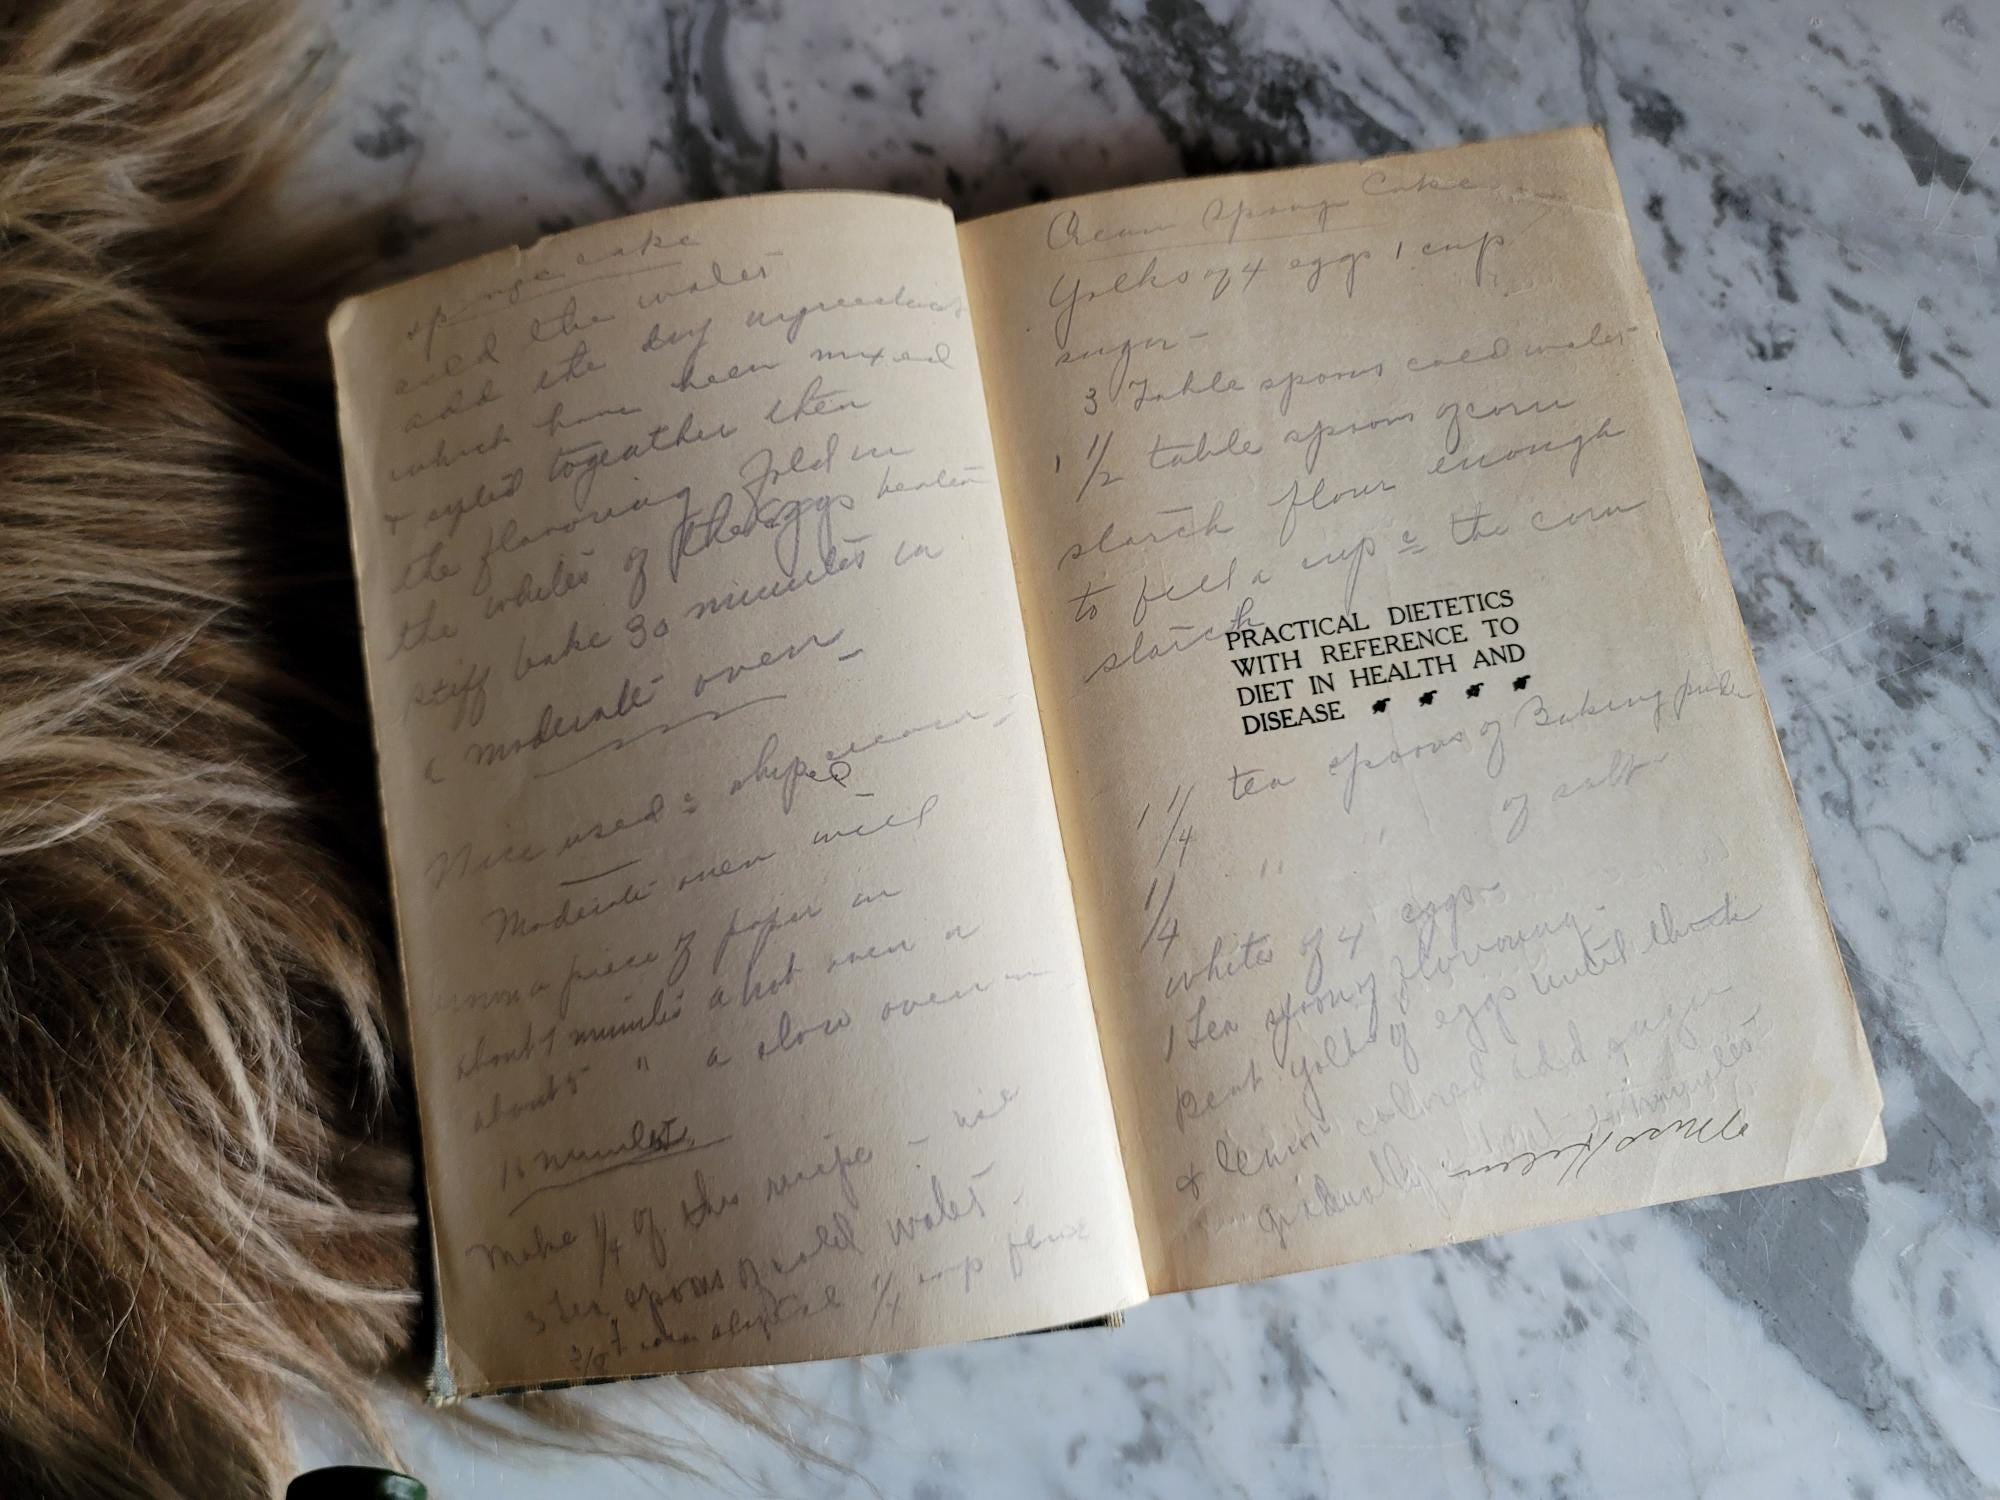 sponge cake
add the water
add the dry ingredients
which have been mixed
& sifted togeather then
the flavoring fold in
the whites of the eggs beaten
stiff bake 30 minutes in
a moderate oven
Nice used c̄ whiped cream
Moderate oven will
a piece of paper in
about 7 minutes a hot oven in
about 5 " a slow oven in
minutes
Make 1/4 of this recipe - use
3 tea spoons of cold water -
corn starch 1/4 cup flour
Cream Sponge Cake
Yolks of 4 eggs 1 cup
sugar -
3 Table spoons cold water
1 1/2 table spoons of corn
starch flour enough
to fill a cup c̄ the corn
starch
PRACTICAL DIETETICS
WITH REFERENCE TO
DIET IN HEALTH AND
DISEASE
1 1/4 tea spoons of Baking powder
1/4 " " of salt
whites of 4 eggs -
1 tea spoon of flavoring -
Beat yolks of eggs until thick
& lemon colored add sugar
gradually